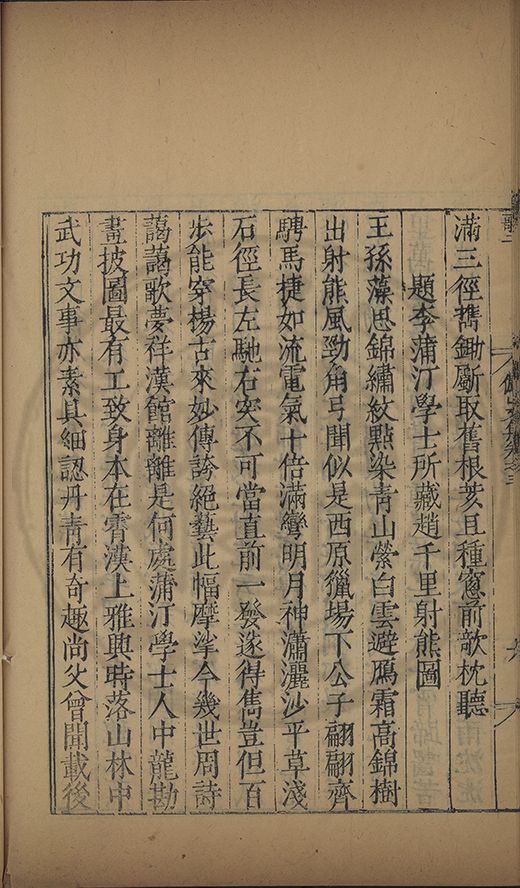 滿三徑擕鋤斸取舊根荄且種窻前欹枕聽
題李蒲汀學士所藏趙千里射熊圖
王孫藻思錦繡紋點染青山縈白雲避鴈霜高錦樹
出射熊風勁角弓聞似是西原獵場下公子翩翩齊
騁馬捷如流電氣十倍滿彎明月神瀟灑沙平草淺
石徑長左馳右突不可當直前一發遂得雋豈但百
步能穿楊古來妙傳誇絕藝此幅摩挲今幾世周詩
藹藹歌夢祥漢館離離是何處蒲汀學士人中龍勘
畫披圖最有工致身本在霄漢上雅興時落山林中
武功文事亦素具細認丹青有奇趣尚父曾聞載後